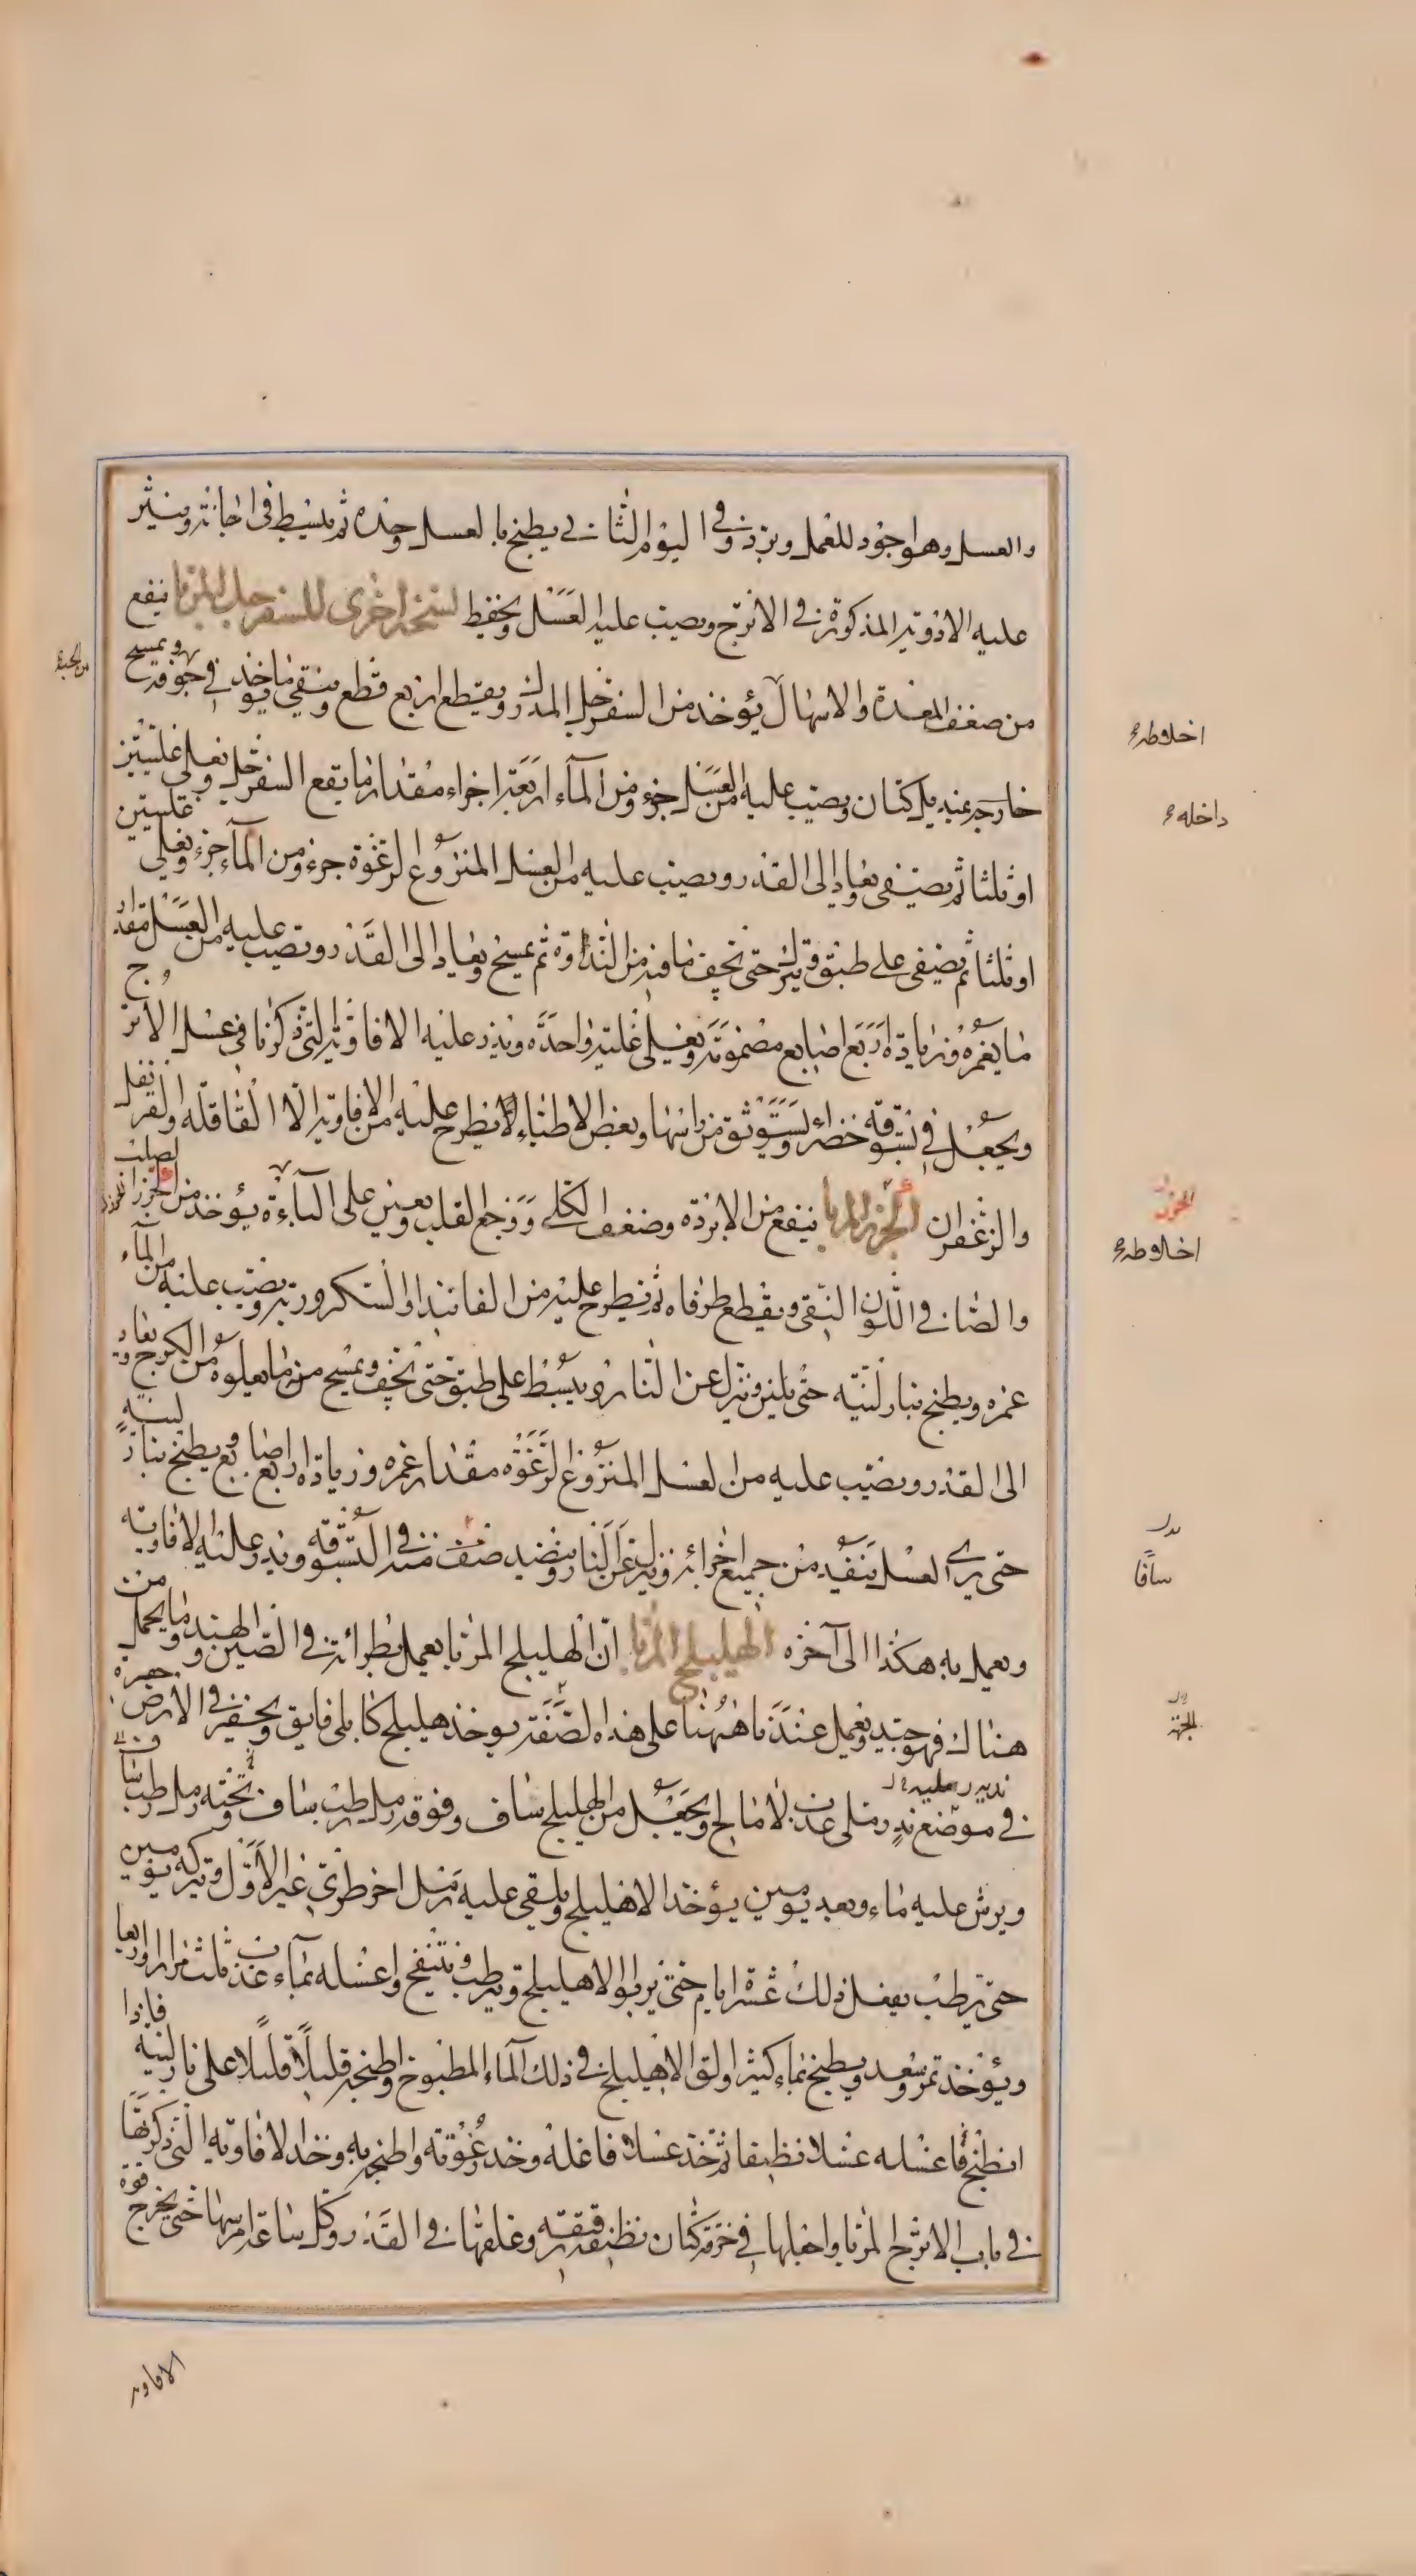 والعسل وهو اجود للعمل ويبرد وفي اليوم الثاني يطبخ بالعسل وحده ثم يبسط في اجانة وينثر
عليه الادوية المذكورة في الاترج ويصب عليه العسل ويحفظ نسخة اخرى للسفرجل المربا ينفع
من ضعف المعدة والاسهال يؤخذ من السفرجل المدرك ويقطع اربع قطع وينقى ما في جوفه ويمسح
خارجه بمنديل كتان ويصب عليه من العسل جزء ومن الماء اربعة اجزاء مقدار ما يقع السفرجل ويغلى غليتين
او ثلثا ثم يصفى ويعاد الى القدر ويصب عليه من العسل المنزوع الرغوة جزء ومن الماء جزء ويغلى غليتين
او ثلثا ثم يصفى على طبق ويترك حتى تجف ما فيه من النداوة ثم يمسح ويعاد الى القدر ويصب عليه من العسل مقدار
ما يغمره وزيادة اربع اصابع مضمومة ويغلى غلية واحدة ويذر عليه الافاويه التي ذكرنا في عسل الاترج
ويجعل في بستوقة خضراء ويستوثق من راسها وبعض الاطباء لا يطرح عليه من الافاويه الا القاقلة والقرنفل
والزعفران الجزر المربا ينفع من الابردة وضعف الكلى ووجع القلب ويعين على الباءة يؤخذ من الجزر الصلب
والصافي اللون النقي ويقطع طرفاه ثم يطرح عليه من الفانيد او السكر ورتبة ويصب عليه من الماء
غمره ويطبخ بنار لينة حتى يلين وينزل عن النار ويبسط على طبق حتى تجف ويمسح من ما يعلوه من الكرج ويعاد
الى القدر ويصب عليه من العسل المنزوع الرغوة مقدار غمره وزيادة اربع اصابع ويطبخ بنار لينة
حتى يرى العسل ينفذ من جميع اجزائه وينزل عن النار وينضد صف منه في البستوقة ويذر عليه الافاويه
ويعمل به هكذا الى آخره الهليلج المربا ان الهليلج المربا يعمل بطرائته في الصين والهند وما يحمل من
هناك فهو جيد ويعمل عندنا هاهنا على هذه الصفة يوخذ هليلج كابلي فايق ويحفر في الارض حفيرة
في موضع ند رملي عذب لا مالح ويجعل من الهليلج ساف وفوقه رمل رطب ساف وتحته رمل رطب ساف
ويرش عليه ماء وبعد يومين يؤخذ الاهليلج ويلقى عليه رمل اخر طري غير الاول ويتركه يومين
حتى يرطب يفعل ذلك عشرة ايام حتى يربوا الاهليلج ويرطب وينتفخ واغسله بماء عذب ثلث مرار او اربعا
ويؤخذ تمر وسعد ويطبخ بماء كثير والق الاهليلج في ذلك الماء المطبوخ واطبخه قليلا قليلا على نار لينة فاذا
انطبخ فاغسله غسلا نظيفا ثم خذ عسلا فاغله وخذ رغوته واطبخه به وخذ الافاويه التي ذكرتها
في باب الاترج المربا واجعلها في خرقة كتان نظيفة رقيقة وعلقها في القدر وكل ساعة امرسها حتى يخرج قوة
اخلاطه
داخله
الجزر
اخلاطه
سافا
الافاويه